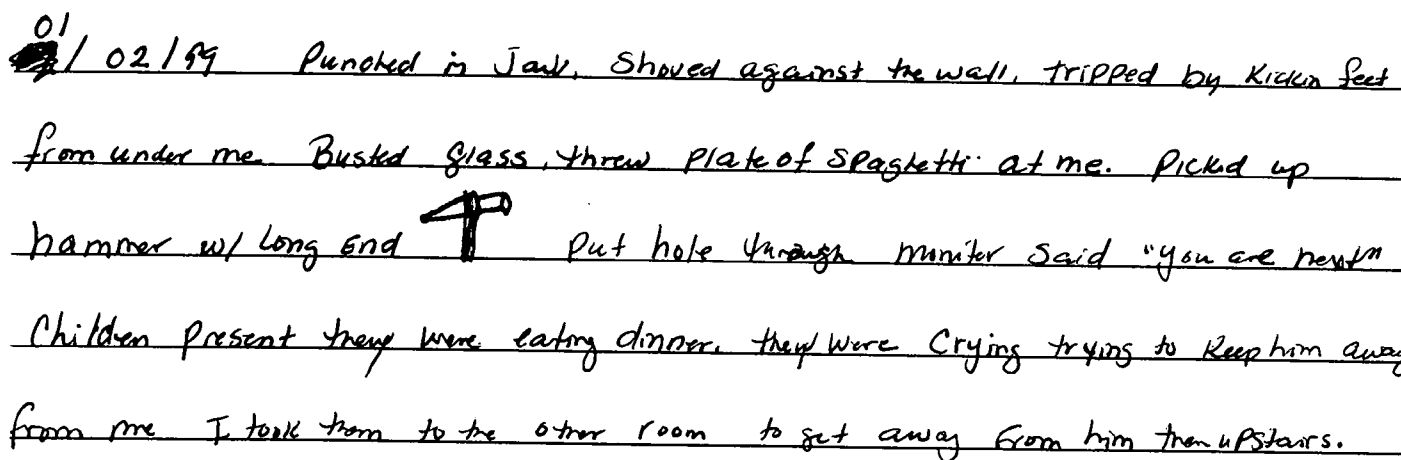 01/02/99 Punched in Jaw, Shoved against the wall, tripped by Kickin feet
from under me. Busted glass, threw plate of Spaghetti at me. Picked up
hammer w/ Long End put hole through moniter Said "you are next"
Children present they were eating dinner. they were Crying trying to Keep him away
from me I took them to the other room to get away from him then upstairs.